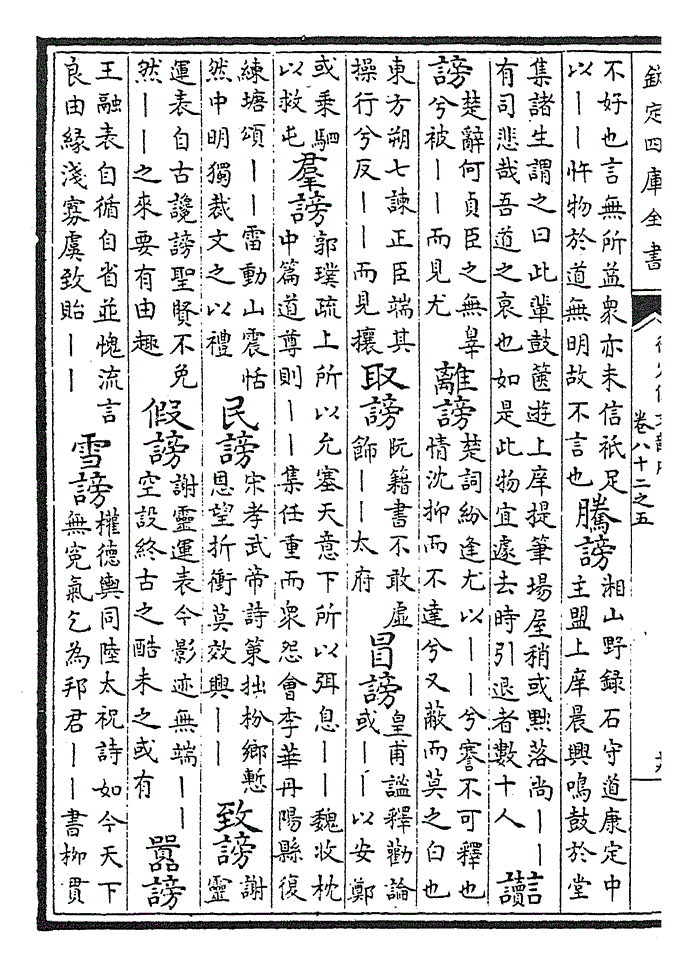 欽定四庫全書
卷八十二之五
不好也言無所益衆亦未信祇足
以丨丨忤物於道無明故不言也
騰謗
湘山野録石守道康定中
主盟上庠晨興鳴鼓於堂
集諸生謂之曰此輩鼓篋遊上庠提筆場屋稍或黜落尚丨丨
有司悲哉吾道之衰也如是此物宜遽去時引退者數十人
讟
謗
楚辭何貞臣之無辠
兮被丨丨而見尤
離謗
楚詞紛逢尤以丨丨兮謇不可釋也
情沈抑而不達兮又蔽而莫之白也
東方朔七諫正臣端其
操行兮反丨丨而見攘
取謗
阮籍書不敢虚
飾丨丨太府
冒謗
皇甫謐釋勸論
或丨丨以安鄭
或乗駟
以救屯
羣謗
郭璞疏上所以允塞天意下所以弭息丨丨魏收枕
中篇道尊則丨丨集任重而衆怨會李華丹陽縣復
練塘頌丨丨雷動山震恬
然中明獨裁文之以禮
民謗
宋孝武帝詩策拙枌鄉慙
恩望折衝莫效興丨丨
致謗
謝
靈
運表自古讒謗聖賢不免
然丨丨之來要有由趣
假謗
謝靈運表今影迹無端丨丨
空設終古之酷未之或有
嚻謗
王融表自循自省並愧流言
良由緣淺寡虞致貽丨丨
雪謗
權德輿同陸太祝詩如今天下
無寃氣乞為邦君丨丨書柳貫